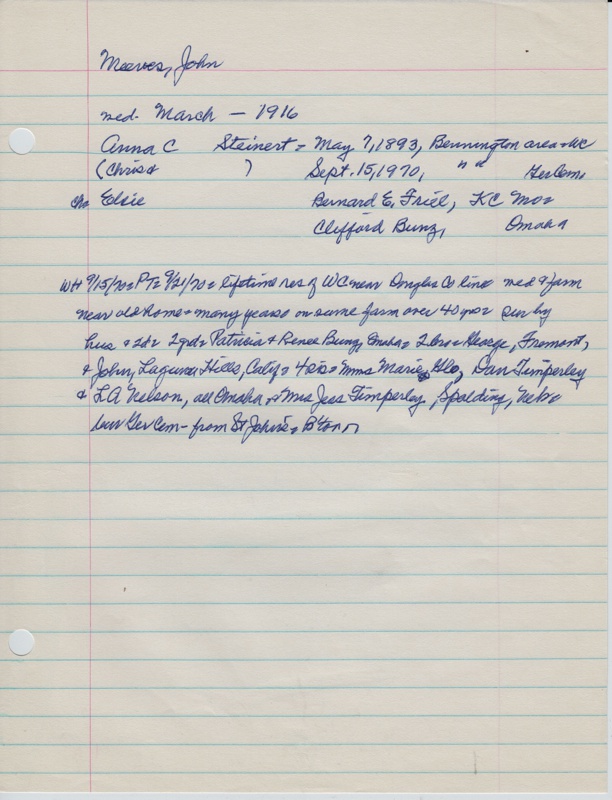 Meeves, John
md. March - 1916
Anna C Steinert = May 7, 1893, Bennington area = WC
(Christ ) Sept. 15, 1970, " " Ger Cem,
ch Elsie Bernard E, Friel, KC Mo =
Clifford Bunz, Omaha
WH 9/15/70 = PT = 9/21/70 = lifetime res of WC near Douglas Co line md & farm
near old home = many years on same farm over 40 yrs = sur by
hus = 2d = 2 grd = Patricia & Renee Bunz, Omaha = 2 bro = George, Fremont,
& John, Laguna Hills, Calif = 4 sis = Mmes Marie Glo, Dan Timperley
& LA Nelson, all Omaha = Mrs Jess Timperley, Spalding, Nebr
bur Ger Cem - from St John's = B'ton